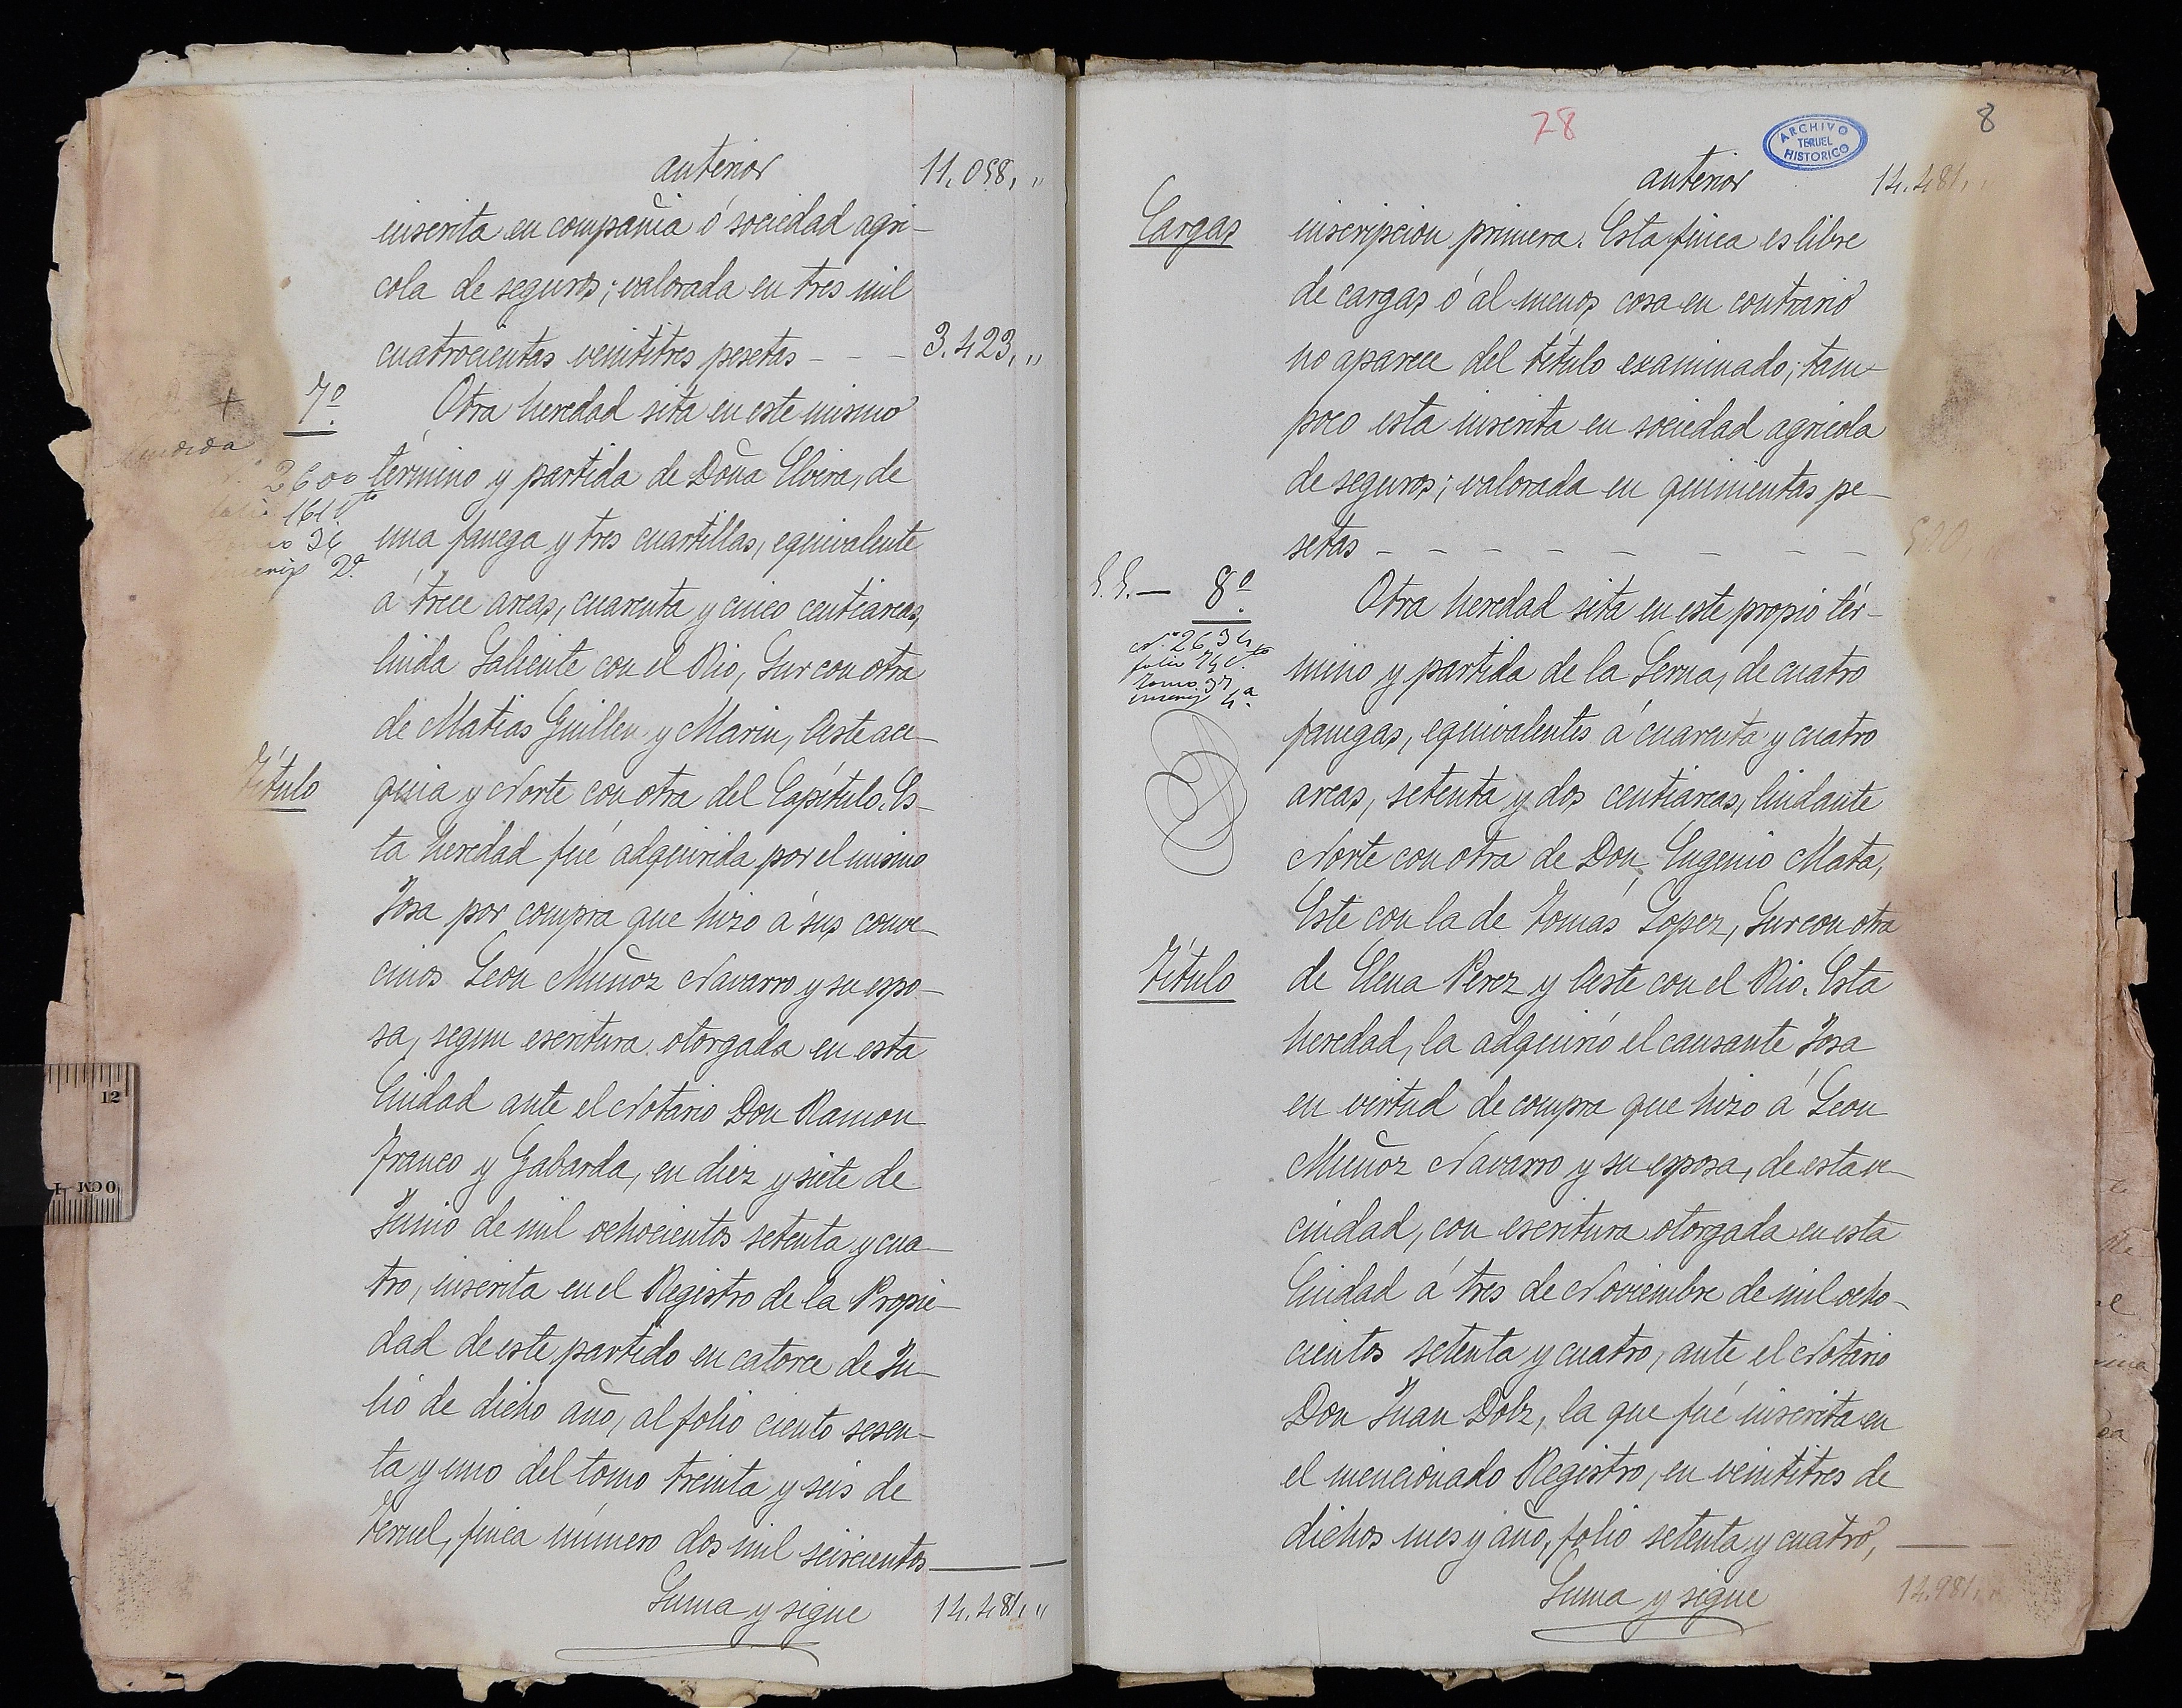 anterior 11.058, "
inscrita en compañia ó sociedad agri-
cola de seguros; valorada en tres mil
cuatrocientas veintitres pesetas - - - 3.423, "
7º Otra heredad sita en este mismo
Vendida
Nº 2600
folio 161 vto
tomo 36
inscrip 2ª
término y partida de Doña Elvira, de
una fanega y tres cuartillas, equivalente
á trece areas, cuarenta y cinco centiareas,
linda Saliente con el Rio, Sur con otra
de Matias Guillen y Marin, Oeste ace-
Título quia y Norte con otra del Capítulo. Es-
ta heredad fué adquirida por el mismo
Josa por compra que hizo á sus conve-
cinos Leon Muñoz Navarro y su espo-
sa, segun escritura otorgada en esta
Ciudad ante el Notario Don Ramon
Franco y Gabarda, en diez y siete de
Junio de mil ochocientos setenta y cua-
tro, inscrita en el Registro de la Propie-
dad de este partido en catorce de Ju-
lio de dicho año, al folio ciento sesen-
ta y uno del tomo treinta y seis de
Teruel, finca número dos mil seiscientos
Suma y sigue 14.481, "
78
ARCHIVO
TERUEL
HISTORICO
8
anterior 14.481, "
Cargas inscripcion primera. Esta finca es libre
de cargas ó al menos cosa en contrario
no aparece del título examinado; tam-
poco esta inscrita en sociedad agricola
de seguros; valorada en quinientas pe-
setas - - - - - - - - 500,
8º Otra heredad sita en este propio tér-
Nº 2634
folio 74 vto
tomo 37
inscrip 4ª
mino y partida de la Serna, de cuatro
fanegas, equivalentes á cuarenta y cuatro
areas, setenta y dos centiareas, lindante
Norte con otra de Don Eugenio Mata,
Este con la de Tomás Lopez, Sur con otra
Título de Elena Perez y Oeste con el Rio. Esta
heredad, la adquirió el causante Josa
en virtud de compra que hizo á Leon
Muñoz Navarro y su esposa, de esta ve-
cindad, con escritura otorgada en esta
Ciudad á tres de Noviembre de mil ocho-
cientos setenta y cuatro, ante el Notario
Don Juan Dolz, la que fué inscrita en
el mencionado Registro, en veintitres de
dichos mes y año, folio setenta y cuatro,
Suma y sigue 14.981, "
12
0CM 1